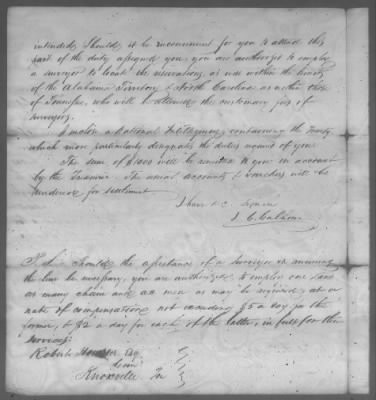 intended. Should it be inconvenient for you to attend this
part of the duty assigned you, you are authorized to employ
a surveyor to locate the reservations, as well within the limits
of the Alabama Territory & North Carolina as within those
of Tennessee, who will be allowed the customary fees of
surveying.
I enclose a National Intelligencer, containing the Treaty
which more particularly designates the duties required of you.
The sum of $1000 will be remitted to you on account
by the Treasurer. The usual accounts & vouchers will be
rendered for settlement
I have &c Signed
J. C. Calhoun
P.S. Should the assistance of a surveyor in running
the line be necessary, you are authorized to employ one and
as many chain and ax men as may be required, at a
rate of compensation not exceeding $5 a day for the
former, & $2 a day for each of the latter, in full for their
services.
Robert Houston Esq
Knoxville Ten